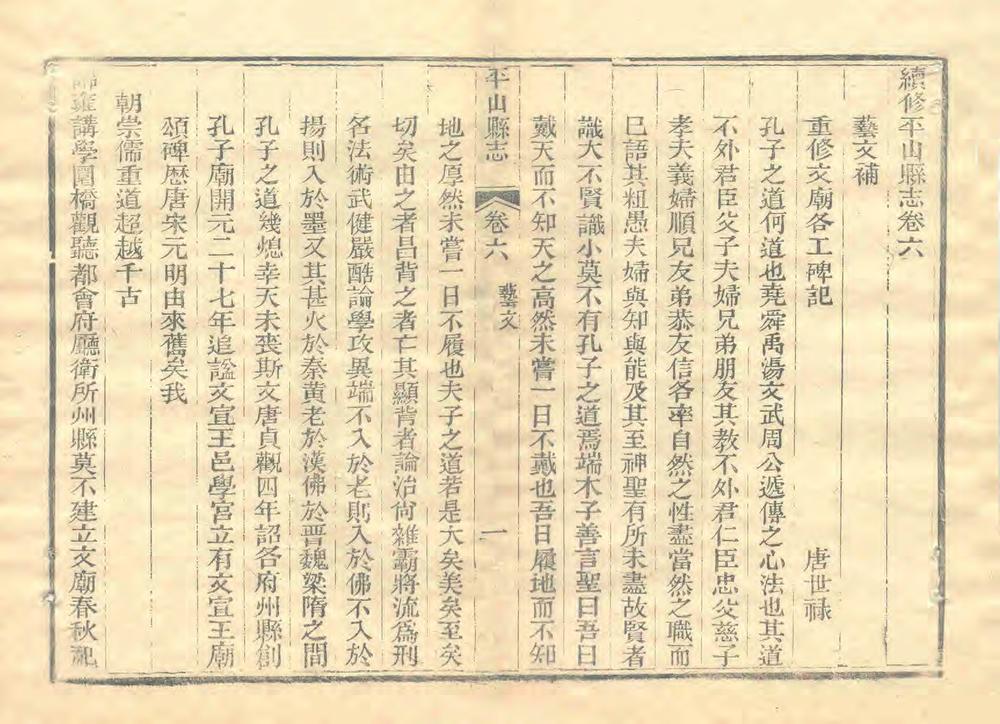 續修平山縣志卷六
藝文補
重修文廟各工碑記 唐世祿
孔子之道何道也堯舜禹湯文武周公遞傳之心法也其道
不外君臣父子夫婦兄弟朋友其教不外君仁臣忠父慈子
孝夫義婦順兄友弟恭友信各率自然之性盡當然之職而
已語其粗愚夫婦與知與能及其至神聖有所未盡故賢者
識大不賢識小莫不有孔子之道焉端木子善言聖曰吾日
戴天而不知天之高然未嘗一日不戴也吾日履地而不知
平山縣志 卷六 藝文 一
地之厚然未嘗一日不履也夫子之道若是大矣美矣至矣
切矣由之者昌背之者亡其顯背者論治尚雜霸將流爲刑
名法術武健嚴酷論學攻異端不入於老則入於佛不入於
揚則入於墨又其甚火於秦黃老於漢佛於晉魏梁隋之間
孔子之道幾熄幸天未喪斯文唐貞觀四年詔各府州縣創
孔子廟開元二十七年追謚文宣王邑學宮立有文宣王廟
頌碑歷唐宋元明由來舊矣我
朝崇儒重道超越千古
雍講學圜橋觀聽都會府廳衛所州縣莫不建立文廟春秋祀